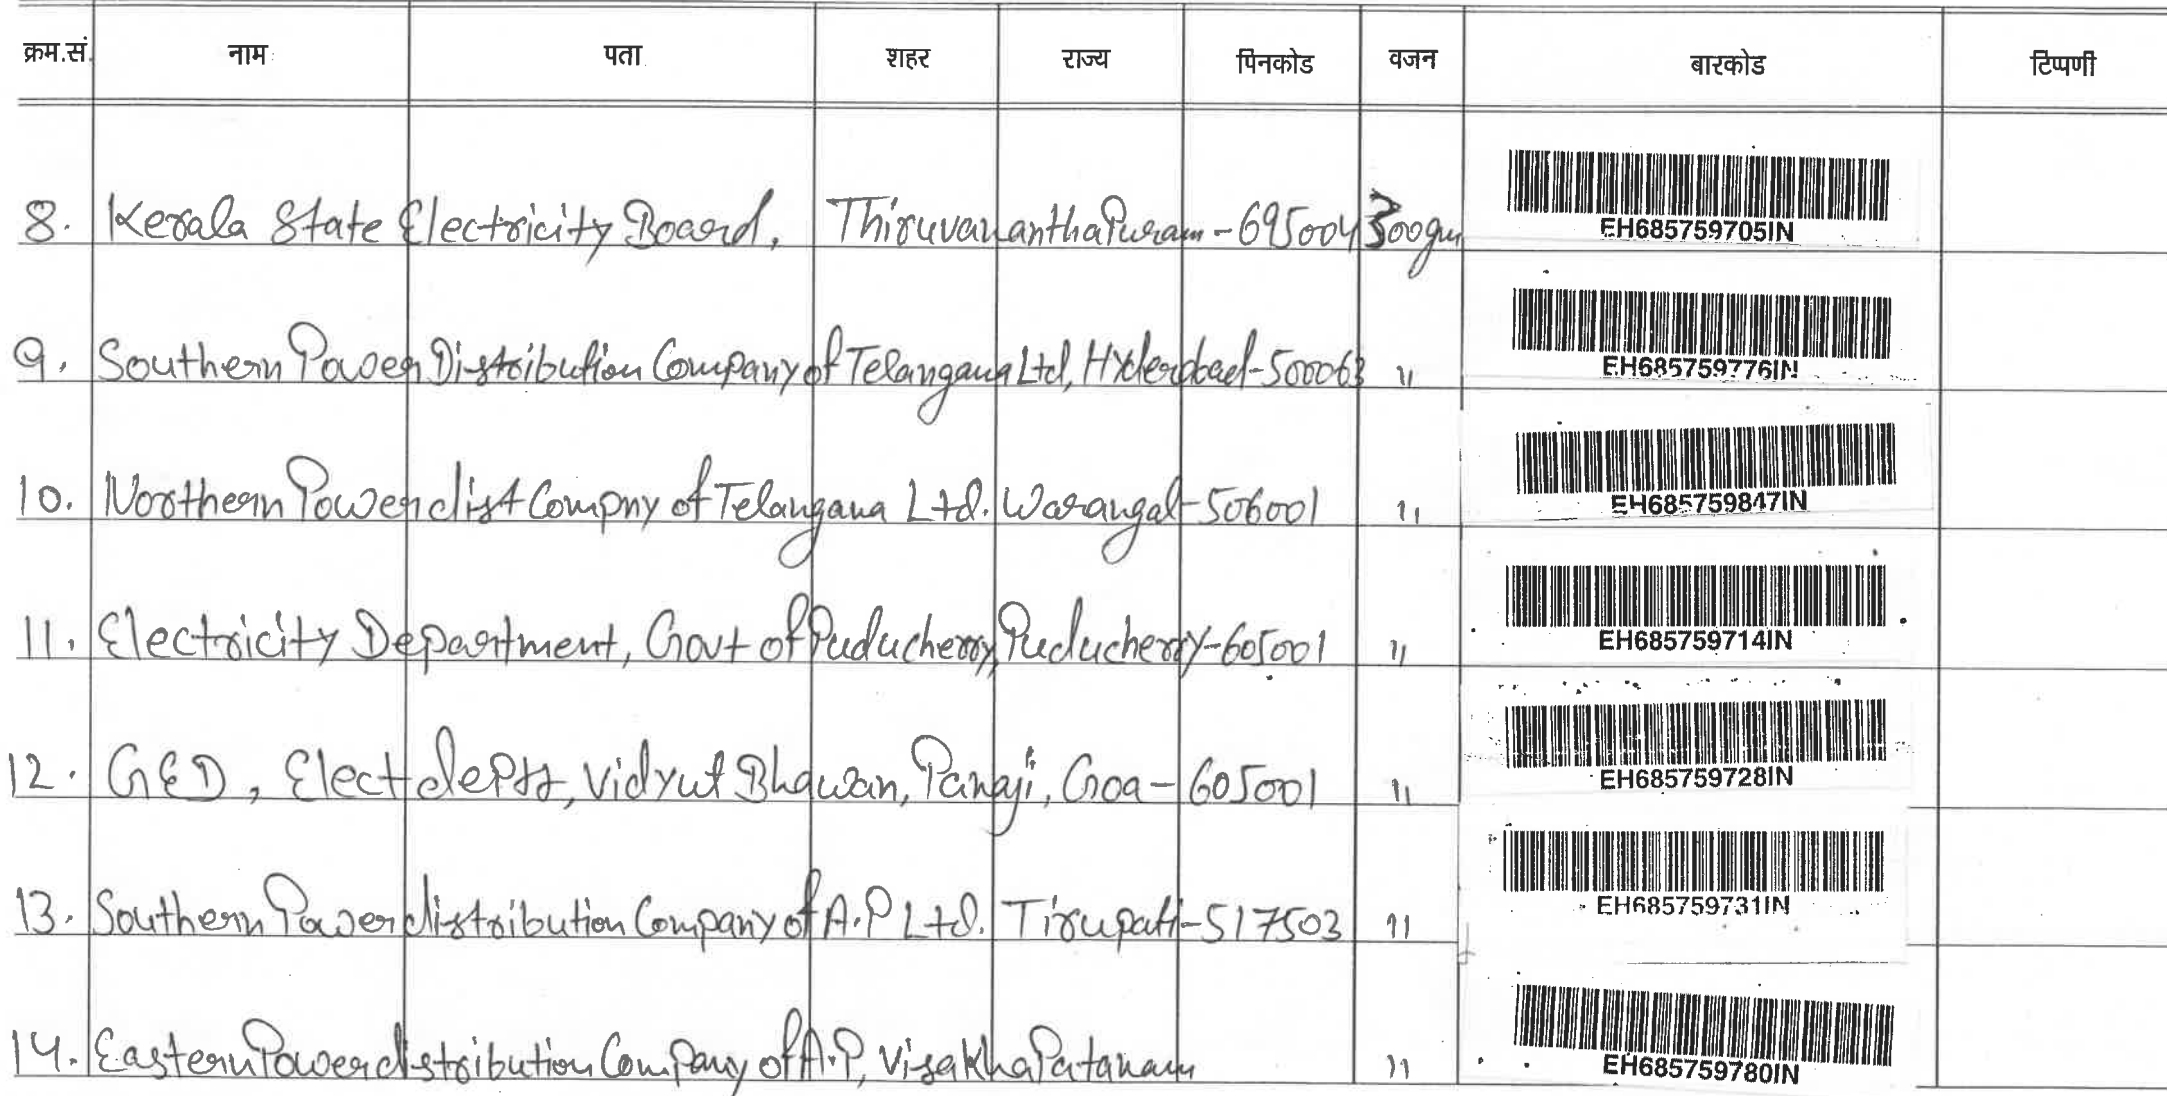 क्रम.सं. नाम पता शहर राज्य पिनकोड वजन बारकोड टिप्पणी
8. Kerala State Electricity Board, Thiruvananthapuram - 695004 300gm EH685759705IN
9. Southern Power Distribution Company of Telangana Ltd, Hyderabad - 500063 " EH685759776IN
10. Northern Power dist Compny of Telangana Ltd. Warangal - 506001 " EH685759847IN
11. Electricity Department, Govt of Puducherry, Puducherry - 605001 " EH685759714IN
12. GED, Elect deptt, Vidyut Bhawan, Panaji, Goa - 605001 " EH685759728IN
13. Southern Power distribution Company of A.P Ltd. Tirupati - 517503 " EH685759731IN
14. Eastern Power distribution Company of A.P, Visakhapatanam " EH685759780IN